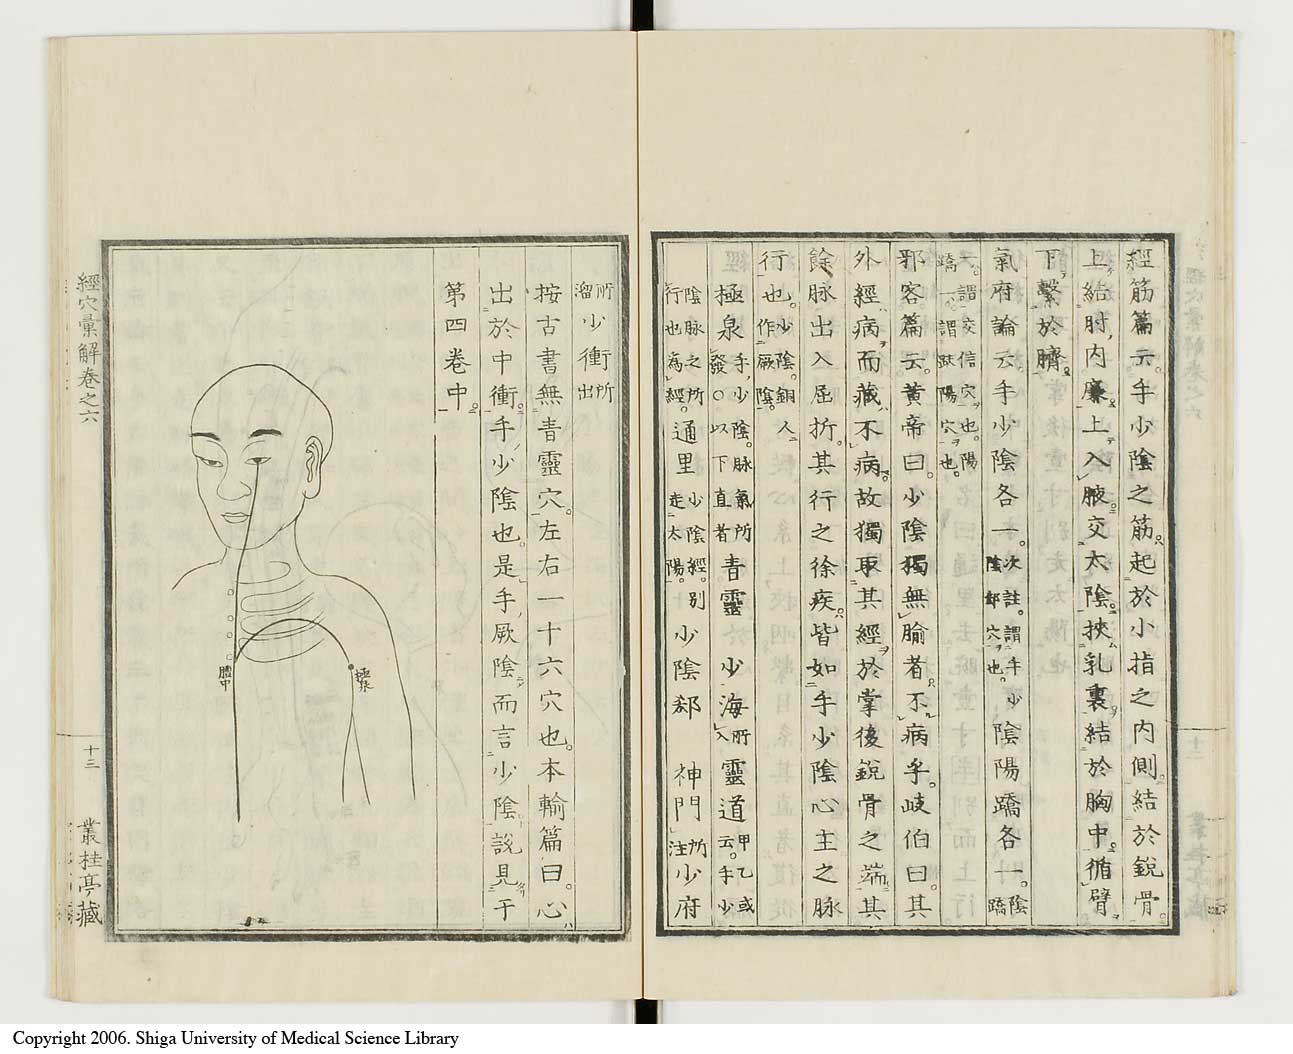 經筋篇云手少陰之筋起於小指之內側結於銳骨
上結肘內廉上入腋交太陰挾乳裏結於胸中循臂
下繫於臍
氣府論云手少陰各一次註謂手少陰郄穴也陰陽蹻各一陰蹻
一謂交信穴也陽蹻一謂跗陽穴也
邪客篇云黃帝曰少陰獨無腧者不病乎岐伯曰其
外經病而藏不病故獨取其經於掌後銳骨之端其
餘脉出入屈折其行之徐疾皆如手少陰心主之脉
行也少陰銅人作厥陰
極泉手少陰脉氣所發○以下直者青靈 少海所入靈道甲乙云手少
陰脉之所行也為經通里少陰經別走太陽少陰郄 神門所注少府
所溜少衝所出
按古書無青靈穴左右一十六穴也本輸篇曰心
出於中衝手少陰也是手厥陰而言少陰說見于
第四卷中
極泉
膻中
經穴彙解卷之六
十三
叢桂亭藏
Copyright 2006. Shiga University of Medical Science Library